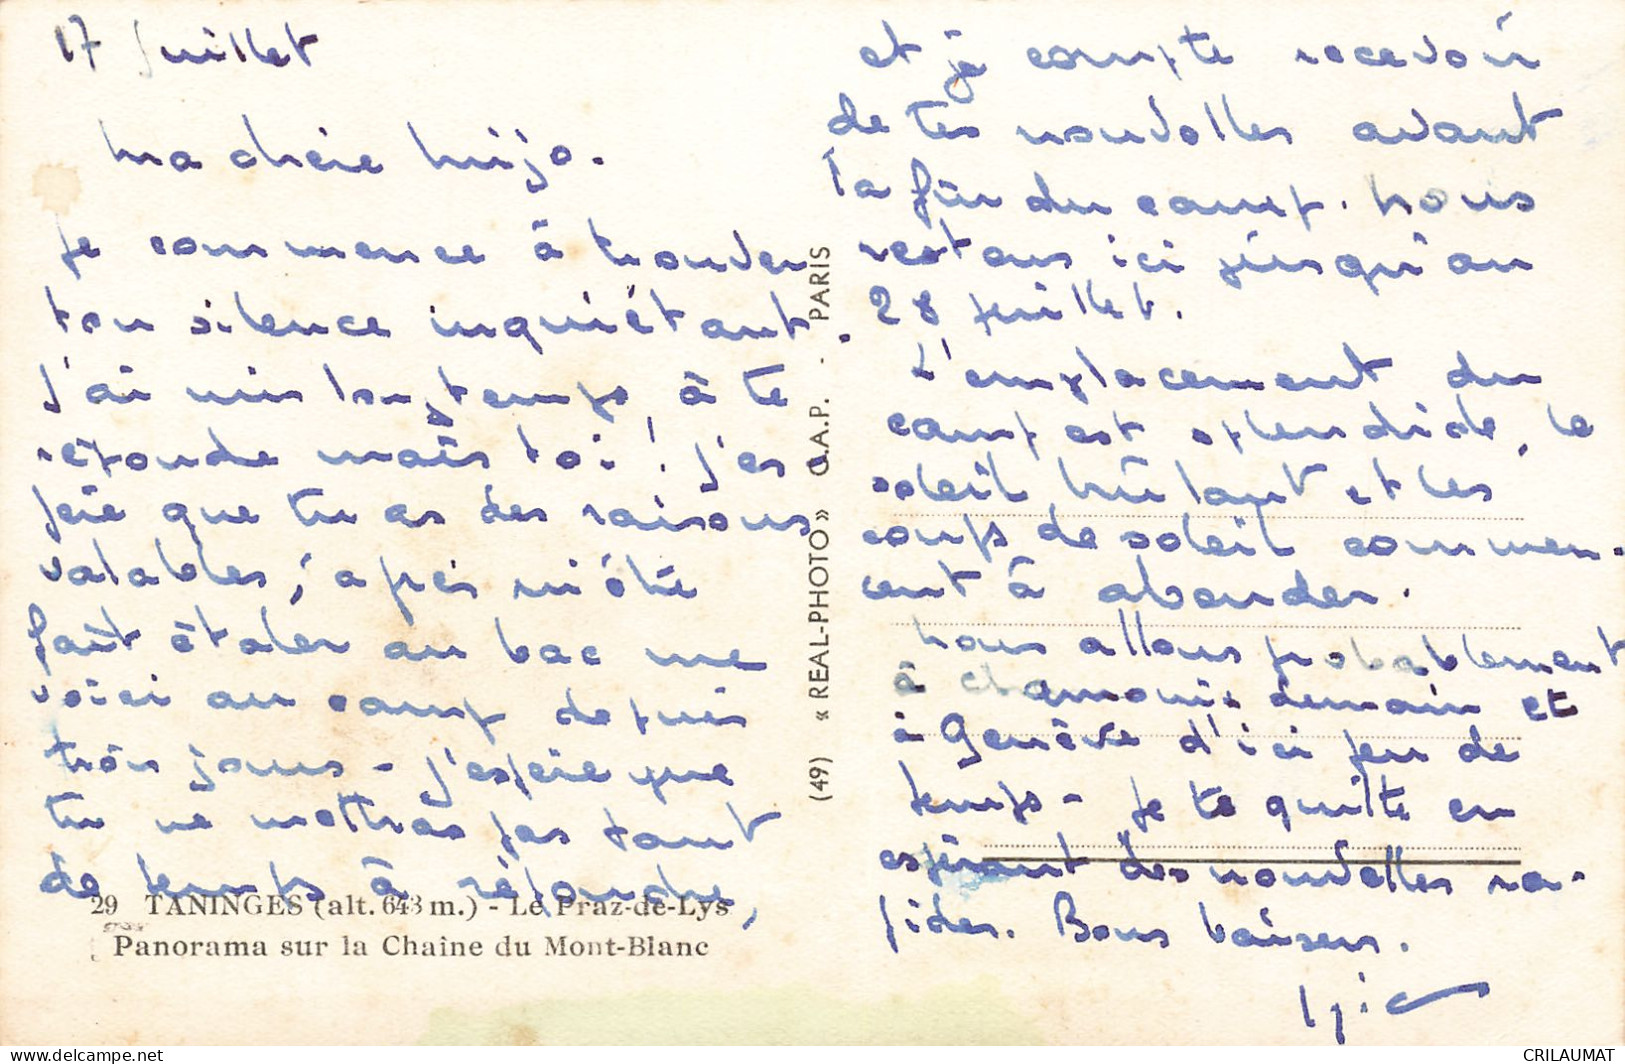 17 Juillet
Ma chère Mijo.
Je commence à trouver
ton silence inquiétant.
J'ai mis longtemps à te
répondre mais toi ! J'es-
père que tu as des raisons
valables, après m'être
fait étaler au bac me
voici au camp depuis
trois jours - J'espère que
tu ne mettras pas tant
de temps à répondre,
29 TANINGES (alt. 643 m.) - Le Praz-de-Lys
Panorama sur la Chaîne du Mont-Blanc
(49) « REAL-PHOTO » C.A.P. - PARIS
et je compte recevoir
de tes nouvelles avant
la fin du camp. Nous
restons ici jusqu'au
28 juillet.
L'emplacement du
camp est splendide, le
soleil brûlant et les
coups de soleil commen-
cent à abonder.
Nous allons probablement
à Chamonix demain et
à Genève d'ici peu de
temps - Je te quitte en
espérant des nouvelles ra-
pides. Bons baisers.
CRILAUMAT